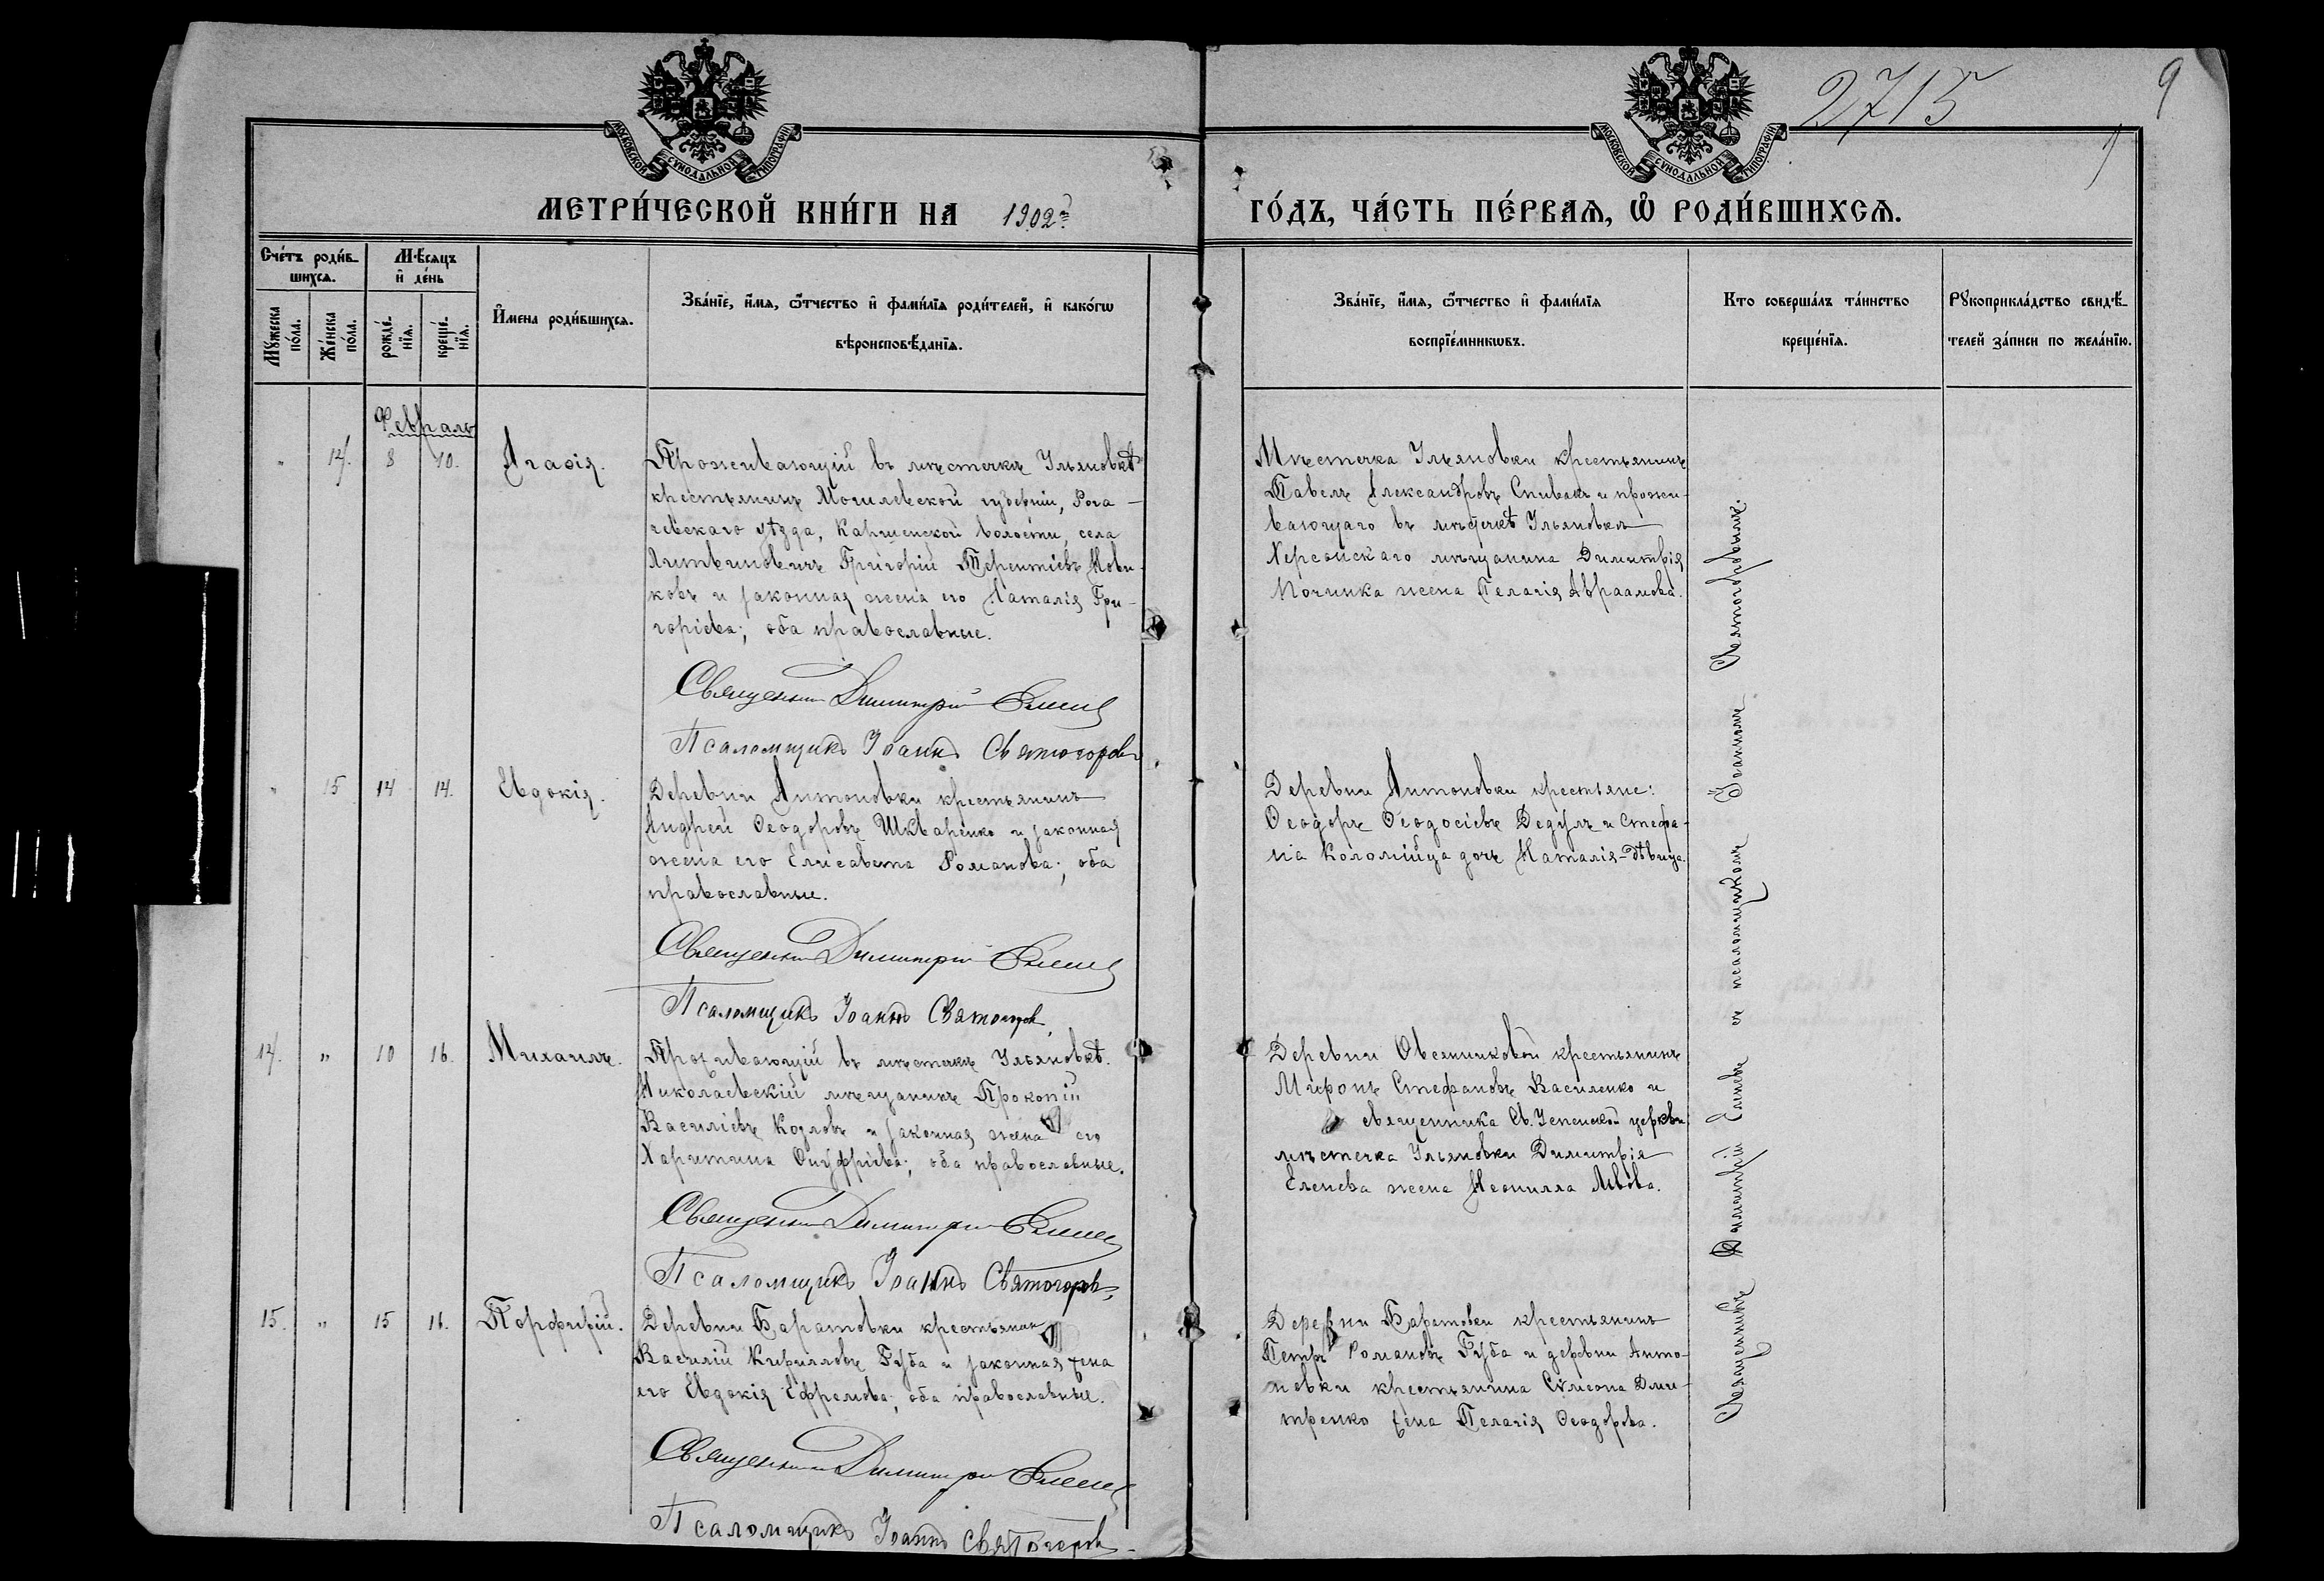 2715
9
МОСКОВСКОЙ СѴНОДАЛЬНОЙ ТИПОГРАФІИ
МОСКОВСКОЙ СѴНОДАЛЬНОЙ ТИПОГРАФІИ
МЕТРИ́ЧЕСКОЙ КНИ́ГИ НА 1902й
ГО́ДЪ, ЧА́СТЬ ПЕ́РВАЯ, Ѡ РОДИ́ВШИХСЯ.
Сче́тъ роди́в-
шихся.
Мѣ́сяцъ
и де́нь
Му́жеска
по́ла.
Же́нска
по́ла.
рожде́-
нїя.
креще́-
нїя.
И́мена роди́вшихся.
Зва́нїе, и́мя, ѻ́тчество и фами́лїя роди́телей, и како́гѡ
вѣроисповѣ́данїя.
Зва́нїе, и́мя, ѻ́тчество и фами́лїя
воспрїе́мникѡвъ.
Кто соверша́лъ та́инство
креще́нїя.
Рукоприкла́дство свидѣ́-
телей за́писи по жела́нїю.
Февраль
" 14. 8 10. Агаѳія.
Проживающій въ мѣстечкѣ Ульяновкѣ
крестьянинъ Могилевской губерніи, Рога-
чевскаго уѣзда, волости, села
Литвиновичъ Григорій Терентіевъ Нови-
ковъ и законная жена его Наталія Гри-
горіева; оба православные.
Священникъ Димитрій Еленевъ
Псаломщикъ Іоаннъ Святогоровъ
Мѣстечка Ульяновки крестьянинъ
Павелъ Александровъ Спивакъ и прожи-
вающаго въ мѣстечкѣ Ульяновкѣ
Херсонскаго мѣщанина Димитрія
Починка жена Пелагія Авраамова.
" 15 14 14. Евдокія.
Деревни Антоновки крестьянинъ
Андрей Ѳеодоровъ Шкваренко и законная
жена его Елисавета Романова; оба
православные.
Священникъ Димитрій Еленевъ
Псаломщикъ Іоаннъ Святогоровъ
Деревни Антоновки крестьяне:
Ѳеодоръ Ѳеодосіевъ Дедулъ и Стефа-
на Коломійца дочь Наталія-дѣвица.
14. " 10 16. Михаилъ.
Проживающій въ мѣстечкѣ Ульяновкѣ
Николаевскій мѣщанинъ Прокопій
Василіевъ Козловъ и законная жена его
Харитина Онуфріева; оба православные.
Священникъ Димитрій Еленевъ
Псаломщикъ Іоаннъ Святогоровъ
Деревни Овсянниковой крестьянинъ
Миронъ Стефановъ Василенко и
священника Св. Успенской церкви
мѣстечка Ульяновки Димитрія
Еленева жена Неонилла Львова.
15. " 15 16. Порфирій.
Деревни Баратовки крестьянинъ
Василій Кирилловъ Губа и законная жена
его Евдокія Ефремова; оба православные.
Священникъ Димитрій Еленевъ
Псаломщикъ Іоаннъ Святогоровъ
Деревни Баратовки крестьянинъ
Петръ Романовъ Губа и деревни Анто-
новки крестьянина Сѵмеона Дми-
тренко жена Пелагія Ѳеодорова.
Священникъ Димитрій Еленевъ съ псаломщикомъ Іоанномъ Святогоровымъ.